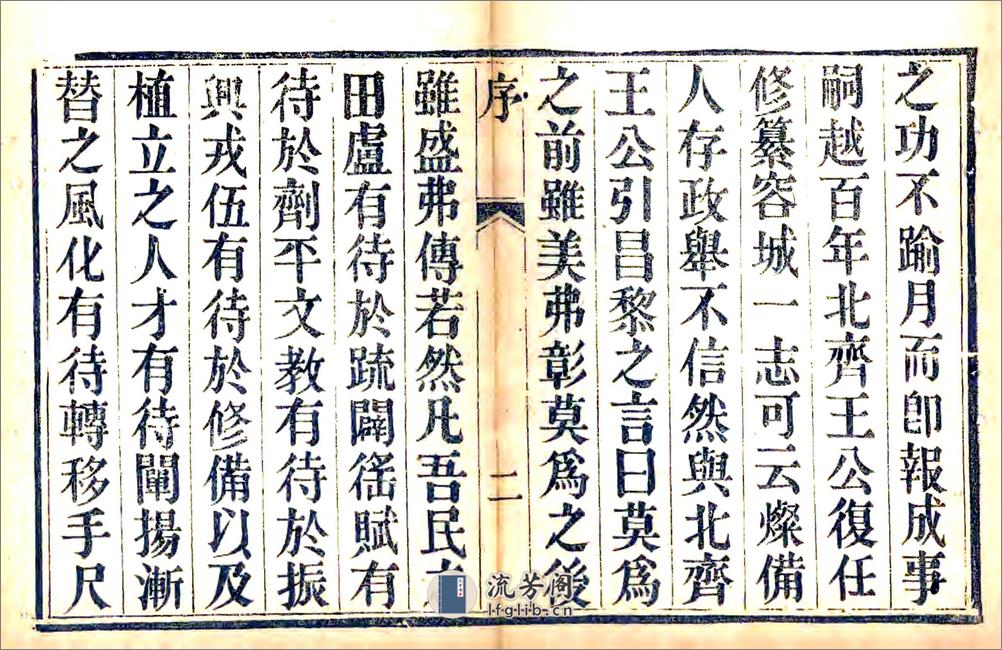 之功不踰月而卽報成事
嗣越百年北齊王公復任
修纂容城一志可云燦備
人存政舉不信然與北齊
王公引昌黎之言曰莫爲
之前雖美弗彰莫爲之後
序
二
雖盛弗傳若然凡吾民
田廬有待於疏闢徭賦有
待於劑平文教有待於振
興戎伍有待於修備以及
植立之人才有待闡揚漸
替之風化有待轉移手尺
流芳阁
lfglib.cn